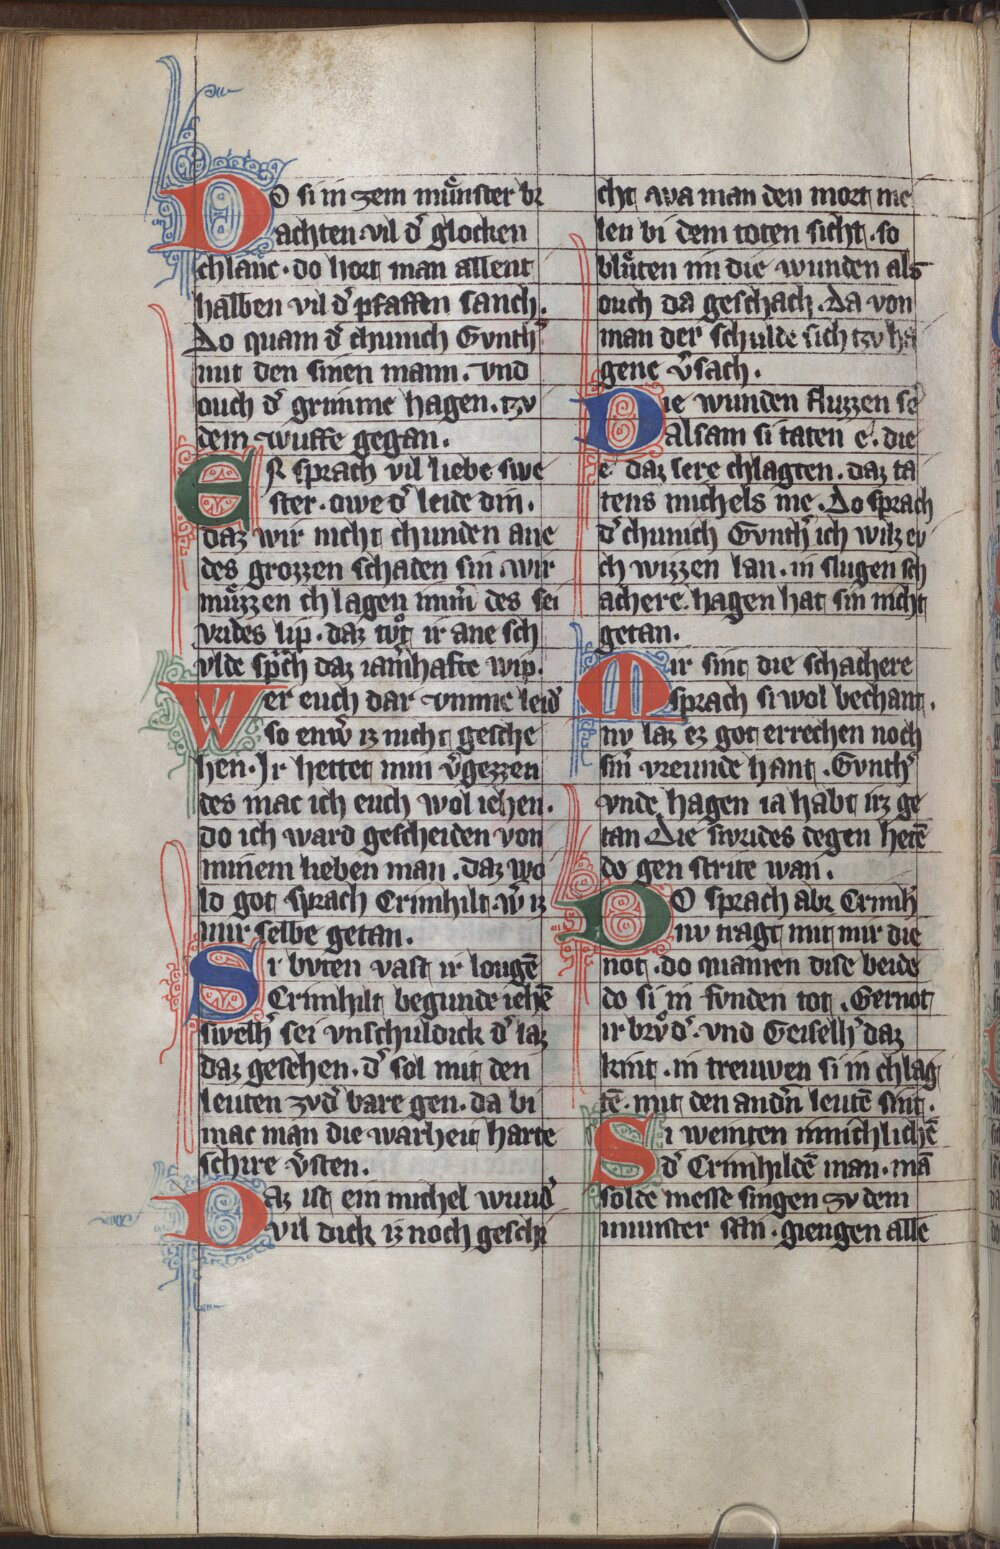 DO si in zem muͤnster br
achten. vil dˀ glocken
chlanc. do hort man allent
halben vil dˀ pfaffen sanch.
Do quam dˀ chunich Gvnthˀ
mit den sinen mann. vnd
ouch dˀ grimme hagen. tzv
dem wuffe gegan.
ER sprach vil liebe swe
ster. owe dˀ leide din.
daz wir nicht chunden ane
des grozzen schaden sin. wir
muͤzzen chlagen imm̄ des sei
vrides lip. daz tvͦt ir ane sch
vlde sprͣch daz iamˀhafte wip.
Wer euch dar vmme leidˀ
so enwˀ iz nicht gesche
hen. Ir hettet min vˀgezzen
des mac ich euch wol iehen.
do ich ward gescheiden von
minem lieben man. daz wo
ld got sprach Crimhilt. wˀ iz
mir selbe getan.
Si bvten vast ir lougē
Crimhilt begunde iehē
swelhˀ sei vnschuldick dˀ laz
daz gesehen. dˀ sol mit den
leuten zvdˀ bare gen. da bi
mac man die warheit harte
schire vˀsten.
Daz ist ein michel wundˀ
vil dick iz noch geschi
cht swa man den mort me
len bi dem toten sicht. so
bluͤten im die wunden als
ouch da geschach. Da von
man der schulde sich tzv ha
gene vˀsach.
Die wunden fluzzen sē
alsam si taten e. die
e daz sere chlagten. daz ta
tens michels me. Do sprach
dˀ chunich Gvnthˀ ich wilz ev
ch wizzen lan. in slugen sch
achere. hagen hat sin nicht
getan.
Mir sint die schachere
sprach si wol bechant.
nv laz ez got errechen noch
sinˀ vreunde hant. Gvnthˀ
vnde hagen ia habt irz ge
tan Die sivrides degen hetē
do gen strite wan.
DO sprach abr Crimhˀ
nv tragt mit mir die
not. do quamen dise beide
do si in funden tot. Gernot
ir brvͦdˀ. vnd Geiselhˀ daz
kint. in treuwen si in chlag
tē. mit den andˀn leutē sint.
Si weinten innichlichē
dˀ Crimhildē man. mā
solde messe singen zv dem
munster san. giengen alle